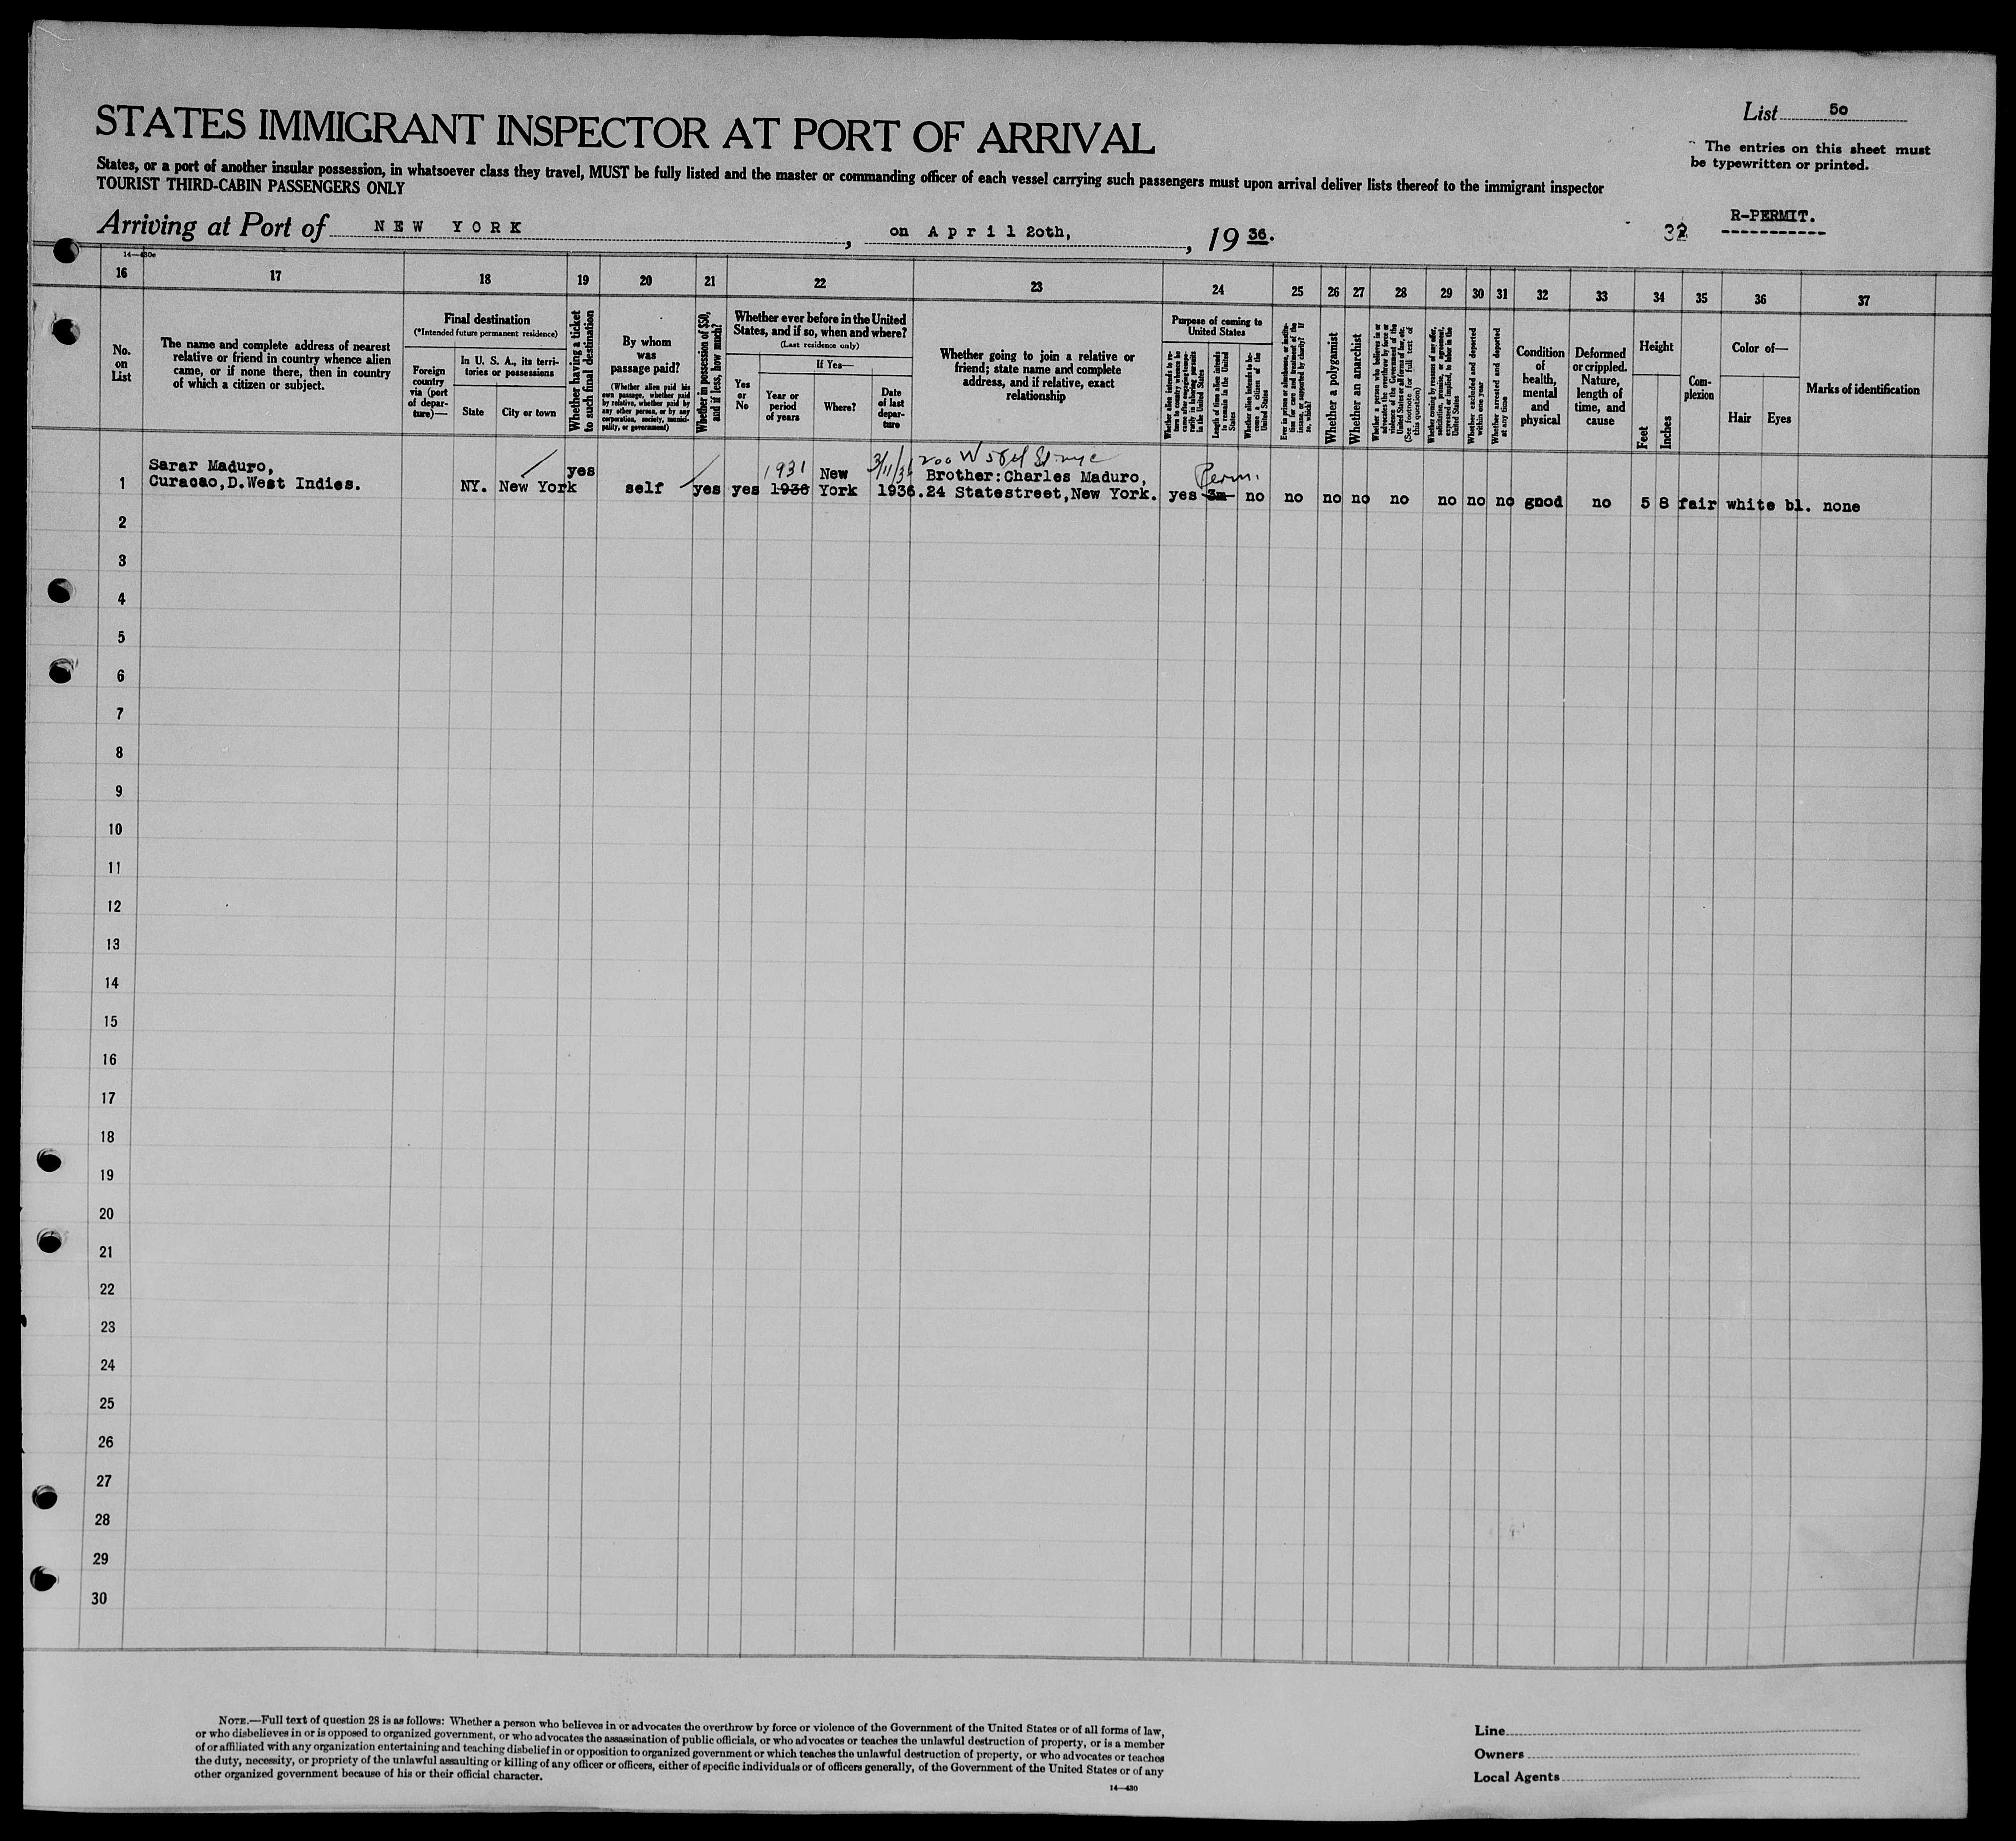 STATES IMMIGRANT INSPECTOR AT PORT OF ARRIVAL
List 50
The entries on this sheet must
be typewritten or printed.
States, or a port of another insular possession, in whatsoever class they travel, MUST be fully listed and the master or commanding officer of each vessel carrying such passengers must upon arrival deliver lists thereof to the immigrant inspector
TOURIST THIRD-CABIN PASSENGERS ONLY
R-PERMIT.
Arriving at Port of NEW YORK, on April 20th, 1936.
14—430e
16 17 18 19 20 21 22 23 24 25 26 27 28 29 30 31 32 33 34 35 36 37
No.
on
List
The name and complete address of nearest
relative or friend in country whence alien
came, or if none there, then in country
of which a citizen or subject.
Final destination
(*Intended future permanent residence)
Foreign
country
via (port
of depar-
ture)—
In U. S. A., its terri-
tories or possessions
State
City or town
Whether having a ticket
to such final destination
By whom
was
passage paid?
(Whether alien paid his
own passage, whether paid
by relative, whether paid by
any other person, or by any
corporation, society, munici-
pality, or government)
Whether in possession of $50,
and if less, how much?
Whether ever before in the United
States, and if so, when and where?
(Last residence only)
Yes
or
No
If Yes—
Year or
period
of years
Where?
Date
of last
depar-
ture
Whether going to join a relative or
friend; state name and complete
address, and if relative, exact
relationship
Purpose of coming to
United States
Whether alien intends to re-
turn to country whence he
came after engaging tempo-
rarily in laboring pursuits
in the United States
Length of time alien intends
to remain in the United
States
Whether alien intends to be-
come a citizen of the
United States
Ever in prison or almshouse, or institu-
tion for care and treatment of the
insane, or supported by charity? If
so, which?
Whether a polygamist
Whether an anarchist
Whether a person who believes in or
advocates the overthrow by force or
violence of the Government of the
United States or all forms of law, etc.
(See footnote for full text of
this question)
Whether coming by reason of any offer,
solicitation, promise, or agreement,
expressed or implied, to labor in the
United States
Whether excluded and deported
within one year
Whether arrested and deported
at any time
Condition
of
health,
mental
and
physical
Deformed
or crippled.
Nature,
length of
time, and
cause
Height
Feet
Inches
Com-
plexion
Color of—
Hair Eyes
Marks of identification
1931 3/11/36 200 W 58th St nyc Perm.
Sarar Maduro, yes New Brother:Charles Maduro,
1 Curacao,D.West Indies. NY. New York self yes yes 1936 York 1936. 24 Statestreet,New York. yes 3m no no no no no no no no good no 5 8 fair white bl. none
2
3
4
5
6
7
8
9
10
11
12
13
14
15
16
17
18
19
20
21
22
23
24
25
26
27
28
29
30
NOTE.—Full text of question 28 is as follows: Whether a person who believes in or advocates the overthrow by force or violence of the Government of the United States or of all forms of law,
or who disbelieves in or is opposed to organized government, or who advocates the assassination of public officials, or who advocates or teaches the unlawful destruction of property, or is a member
of or affiliated with any organization entertaining and teaching disbelief in or opposition to organized government or which teaches the unlawful destruction of property, or who advocates or teaches
the duty, necessity, or propriety of the unlawful assaulting or killing of any officer or officers, either of specific individuals or of officers generally, of the Government of the United States or of any
other organized government because of his or their official character.
14—430
Line
Owners
Local Agents